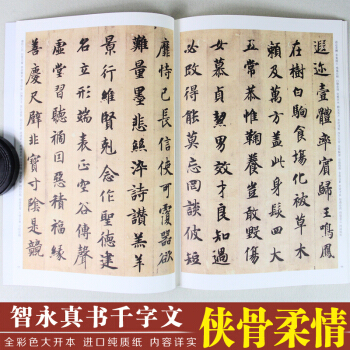 遐迩壹體率賓歸王鳴鳳
在樹白駒食場化被草木
賴及萬方蓋此身髮四大
五常恭惟鞠養豈敢毀傷
女慕貞絜男效才良知過
必改得能莫忘罔談彼短
靡恃己長信使可覆器欲
難量墨悲絲染詩讚羔羊
景行維賢剋念作聖德建
名立形端表正空谷傳聲
虛堂習聽禍因惡積福緣
善慶尺璧非寶寸陰是競
智永真书千字文
全彩色大开本 进口纯质纸 内容详实
侠骨柔情